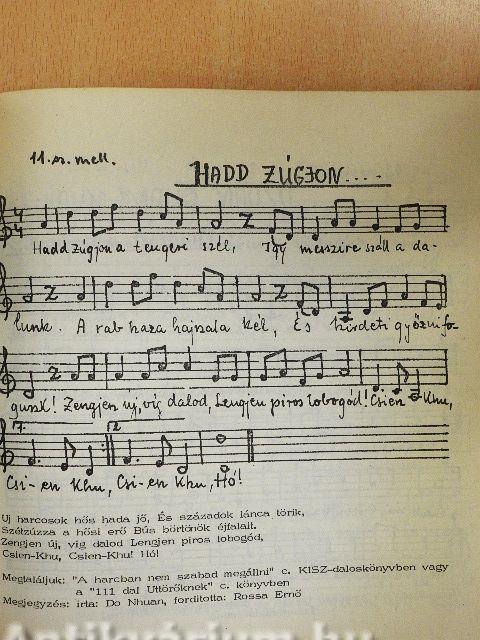 11. sz. mell.
HADD ZÚGJON....
Hadd zúgjon a tengeri szél, Így messzire száll a da-
lunk. A rab haza hajnala kél, És hirdeti győzni fo-
gunk! Zengjen új, víg dalod, Lengjen piros lobogód! Csien - Khu,
1. 2.
Csi-en Khu, Csi-en Khu, Hó!
Uj harcosok hős hada jő, És századok lánca törik,
Szétzúzza a hősi erő Bús börtönök éjfalait.
Zengjen új, víg dalod Lengjen piros lobogód,
Csien-Khu, Csien-Khu! Hó!
Megtaláljuk: "A harcban nem szabad megállni" c. KISZ-daloskönyvben vagy
a "111 dal Uttörőknek" c. könyvben
Megjegyzés: irta: Do Nhuan, forditotta: Rossa Ernő
Antikvarium.hu